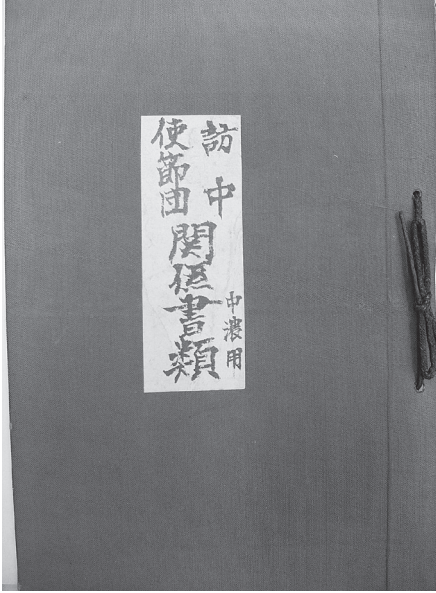 訪中
使節団
関係書類
中濃用